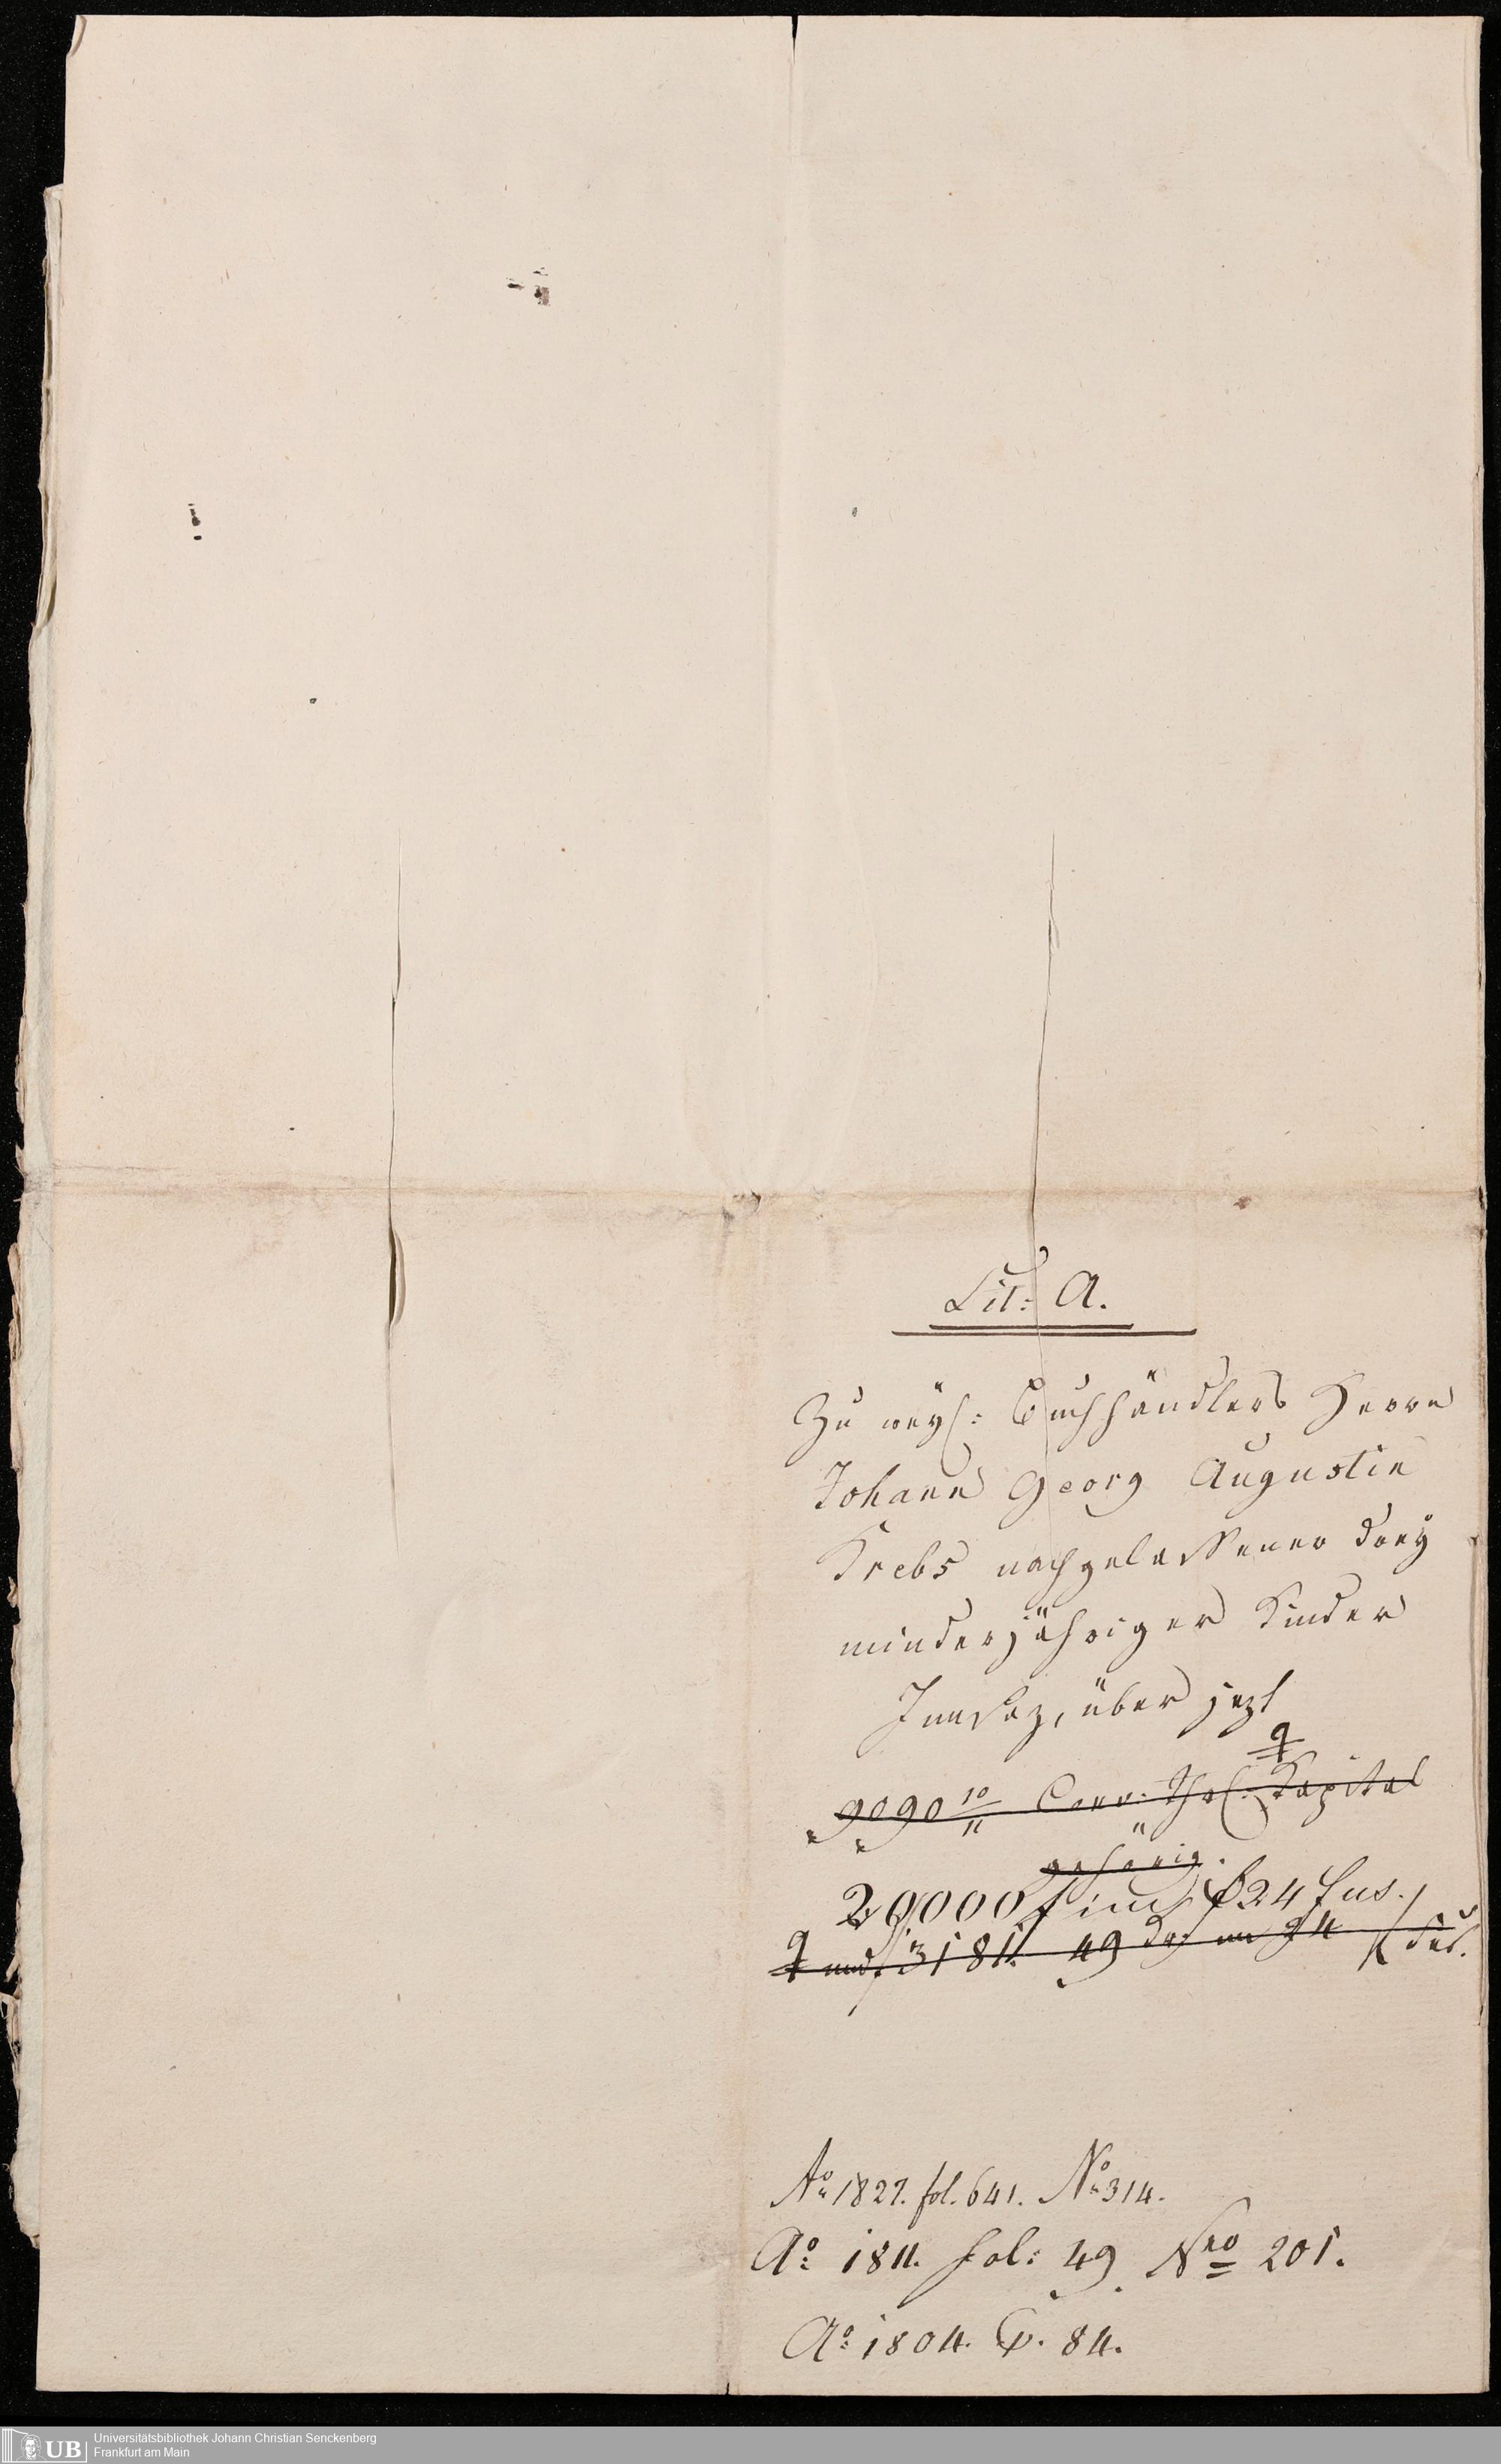 Lit: A.
Zu weyl: Buchhändlers Herrn
Johann Georg Augustin
Krebs nachgelassener drey
minderjähriger Kinder
Innsaz, über jezt
9090 10/11 Conv: Thlr. Kapital
gehörig.
20000 f im f 24 fus.
und f 3181. 49 im 24 f fus.
Ao 1827. fol. 641. No 314.
Ao: 1811. fol: 49. Nro 201.
Ao: 1804. 84.
UB
Universitätsbibliothek Johann Christian Senckenberg
Frankfurt am Main